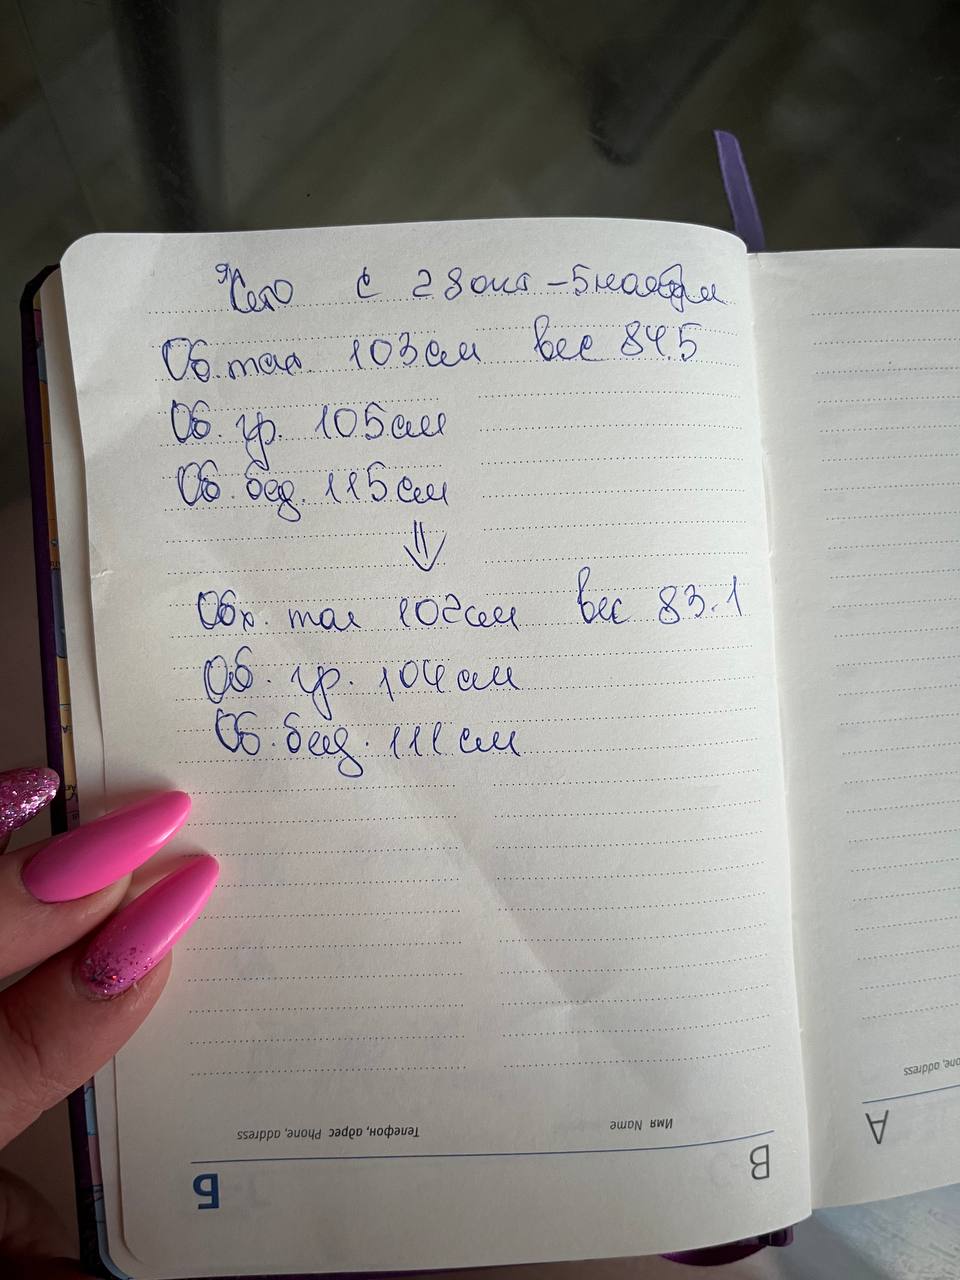 Кето с 28 окт - 5 ноября
Об. тал. 103 см вес 84.5
Об. гр. 105 см
Об. бед. 115 см
⇓
Обх. тал 102 см вес 83.1
Об. гр. 104 см
Об. бед. 111 см
Телефон, адрес Phone, address
Имя Name
Б
В
one, address
А